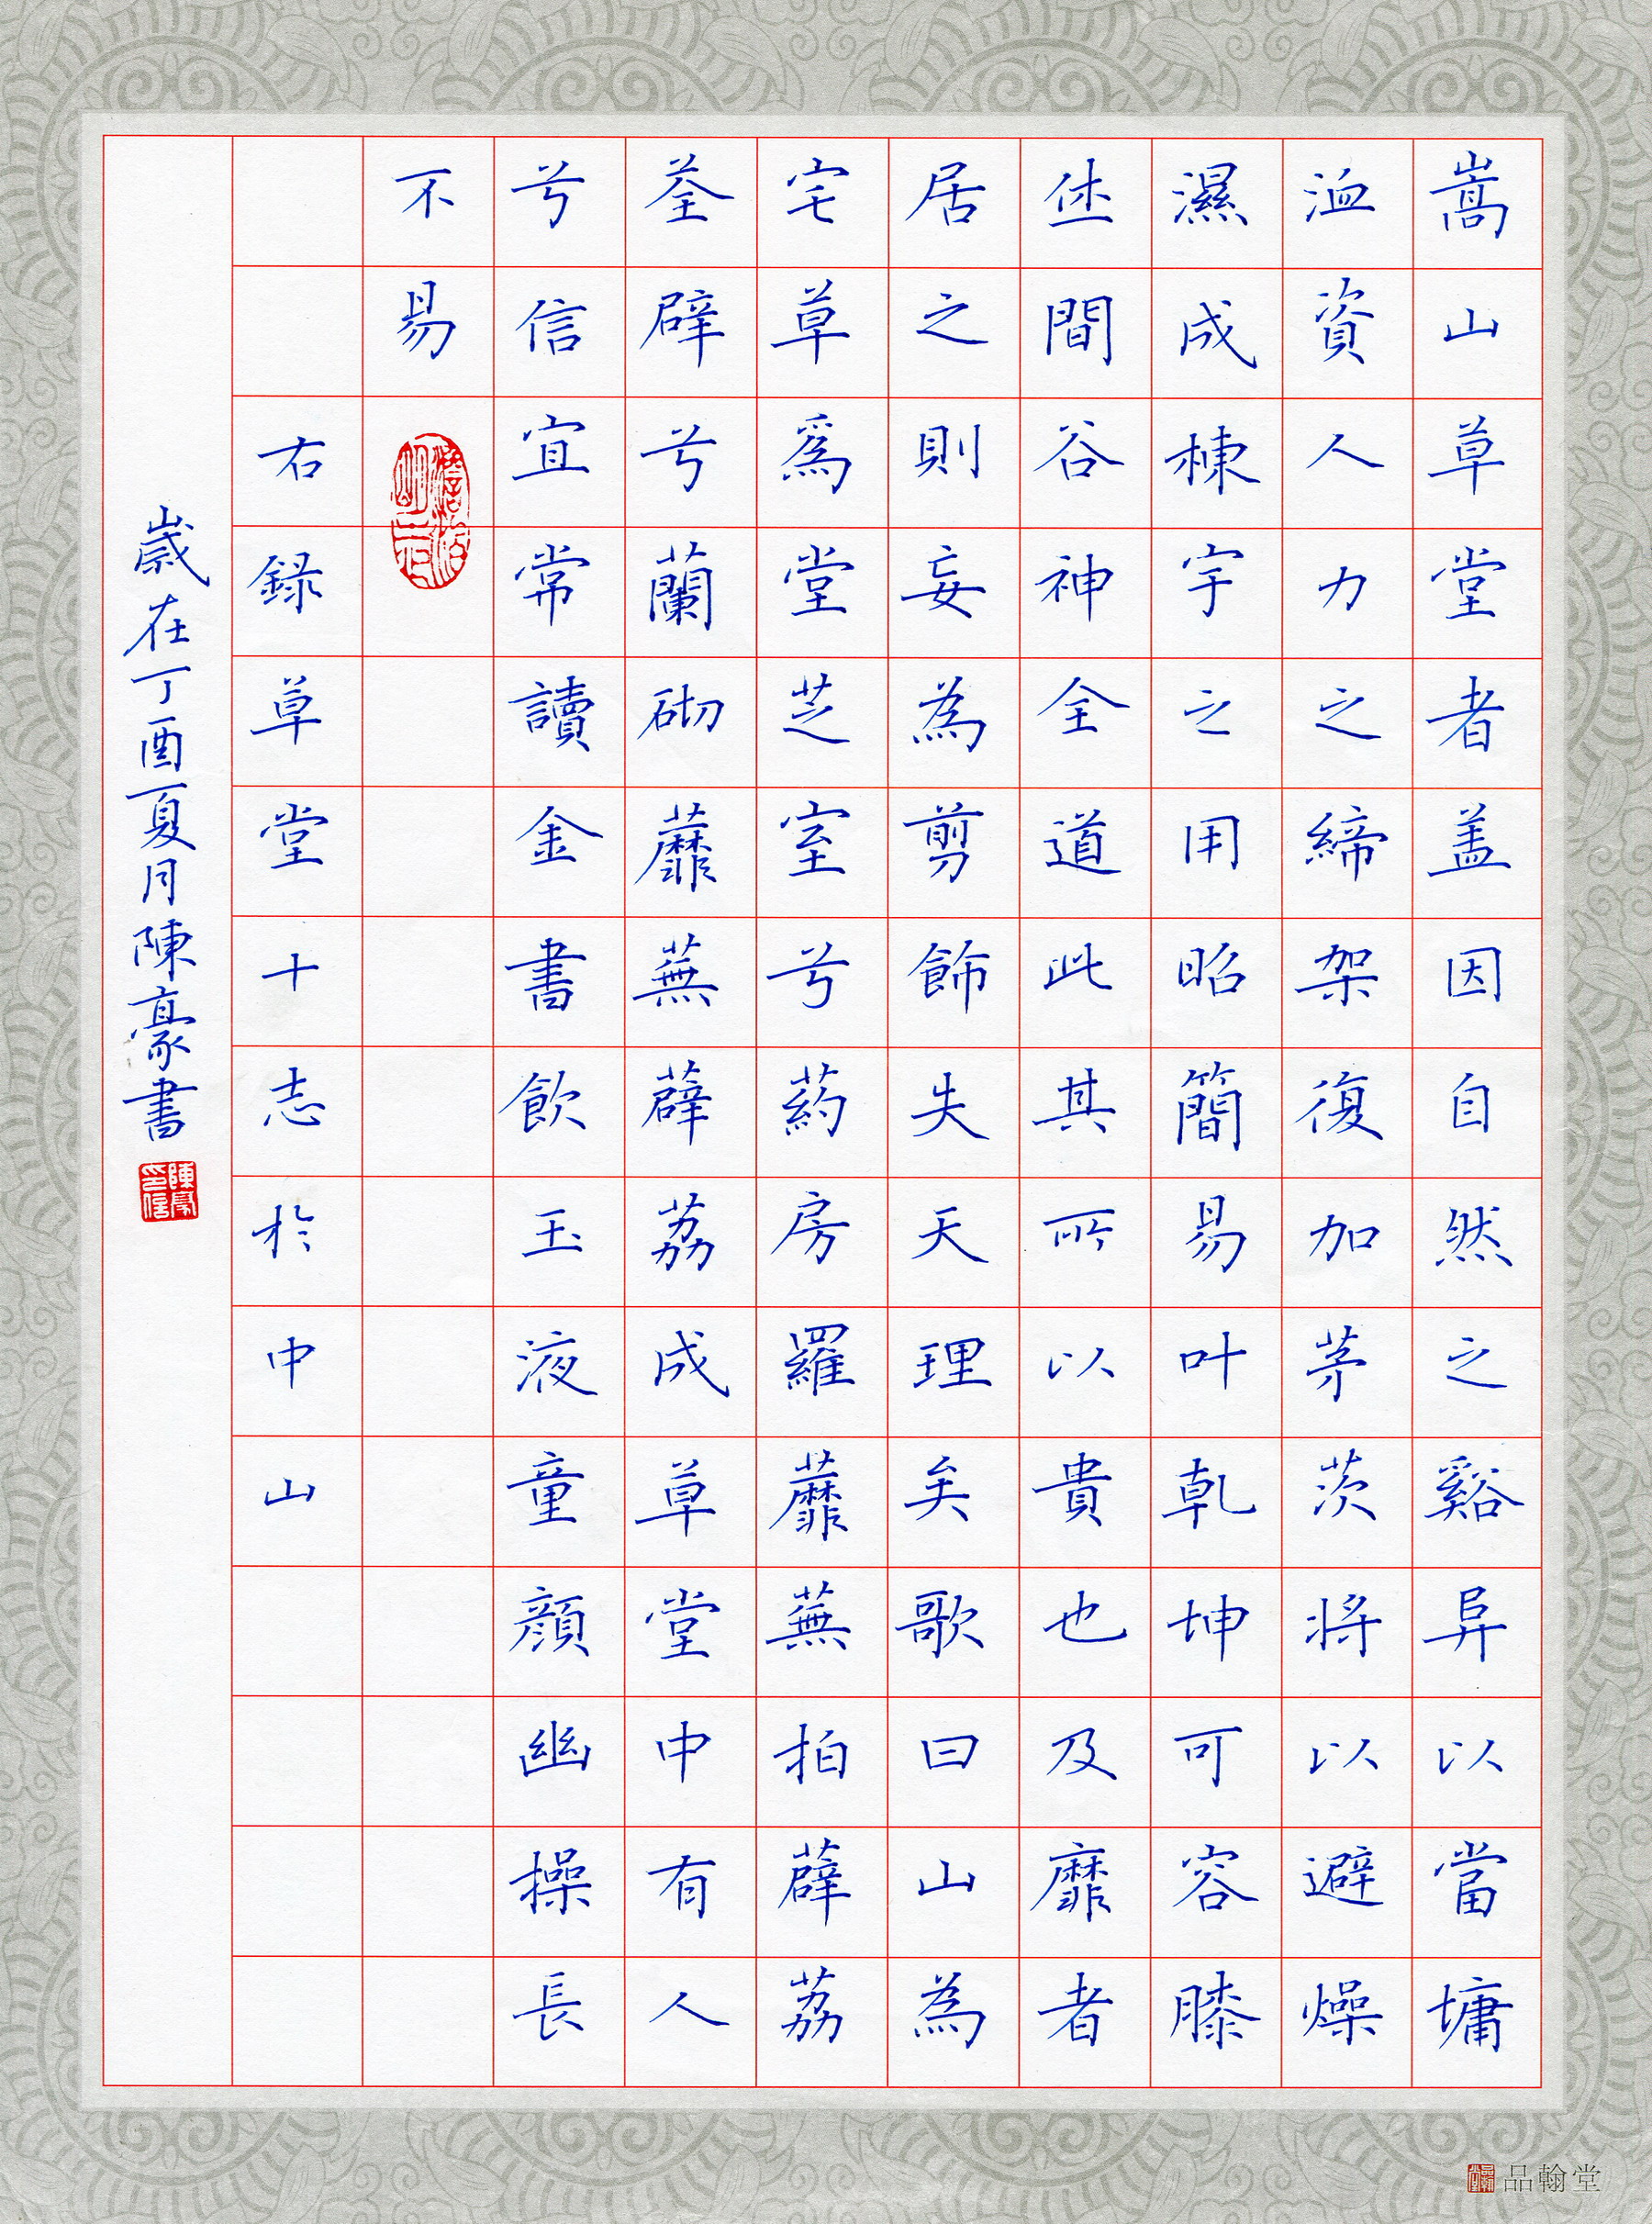 嵩山草堂者盖因自然之谿阜以當墉
洫資人力之締架復加茅茨将以避燥
濕成棟宇之用昭簡易叶乾坤可容膝
休間谷神全道此其所以貴也及靡者
居之則妄為剪飾失天理矣歌曰山為
宅草爲堂芝室兮葯房羅蘼蕪拍薜荔
荃辟兮蘭砌蘼蕪薜荔成草堂中有人
兮信宜常讀金書飲玉液童顔幽操長
不易
澹泊明志
右録草堂十志於中山
歲在丁酉夏月陳豪書
陳豪印信
品翰堂